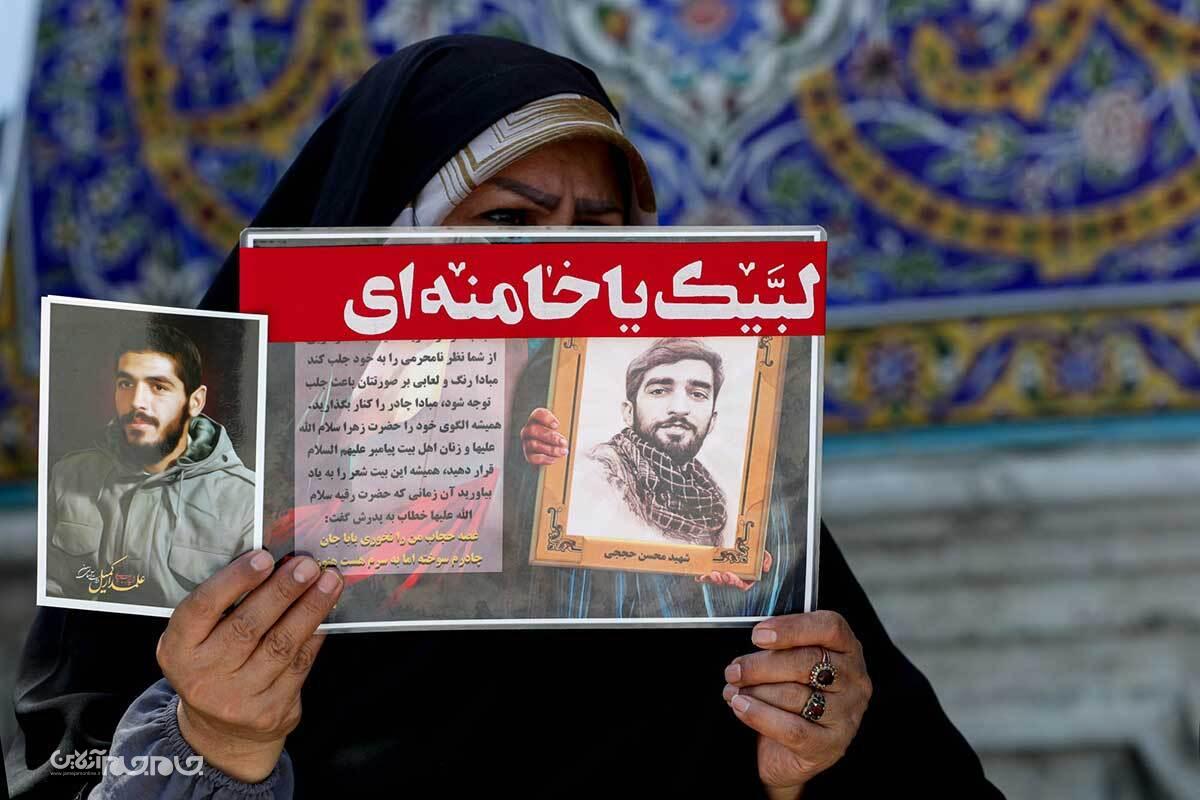 لبَّیْک یا خامنه‌ای
از شما نظر نامحرمی را به خود جلب کند
مبادا رنگ و لعابی بر صورتتان باعث جلب
توجه شود، مبادا چادر را کنار بگذارید.
همیشه الگوی خود را حضرت زهرا سلام الله
علیها و زنان اهل بیت پیامبر علیهم السلام
قرار دهید، همیشه این بیت شعر را به یاد
بیاورید آن زمانی که حضرت رقیه سلام
الله علیها خطاب به پدرش گفت:
غصه حجاب من را نخوری بابا جان
چادرم سوخته اما به سرم هست هنوز
شهید محسن حججی
علمدار کمیل
جام جم آنلاین
www.jamejamonline.ir